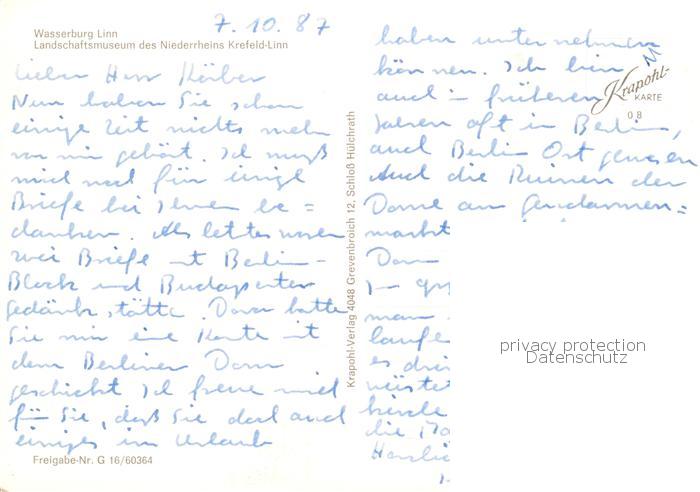 Wasserburg Linn
Landschaftsmuseum des Niederrheins Krefeld-Linn
7.10.87
Lieber Herr Körber
Nun haben Sie schon
einige Zeit nichts mehr
von mir gehört. Ich muß
mich noch für einige
Briefe bei Ihnen be=
danken. Als letztes waren
zwei Briefe mit Berlin-
Block und Budapester
gedänkstätte. Davor hatte
Sie mir eine Karte mit
dem Berliner Dom
geschickt Ich freue mich
für Sie, daß Sie doch auch
einiges im Urlaub
Freigabe-Nr. G 16/60364
Krapohl-Verlag 4048 Grevenbroich 12, Schloß Hülchrath
haben unternehmen
können. Ich bin
auch in früheren
Jahren oft in Berlin,
auch Berlin Ost gewesen
Auch die Ruinen der
Dome am Gendarmen=
markt
Dom
man
laufe
es
die
Herzlic
Krapohl-
KARTE
08
privacy protection
Datenschutz